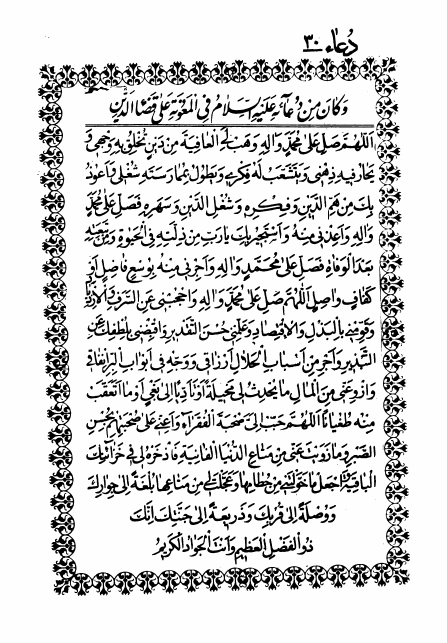 دُعاء ٣٠
وَكانَ مِنْ دُعائِهِ عَلَيْهِ السَّلامُ فِي الْمَعُونَةِ عَلى قَضاءِ الدَّيْنِ
اَللّهُمَّ صَلِّ عَلى مُحَمَّدٍ وَالِهِ وَهَبْ لِيَ الْعافِيَةَ مِنْ دَيْنٍ تُخْلِقُ بِهِ وَجْهي وَ
يَحارُ فيهِ ذِهْني وَيَتَشَعَّبُ لَهُ فِكْري وَيَطُولُ بِمُمارَسَتِهِ شُغْلي وَاَعُوذُ
بِكَ مِنْ هَمِّ الدَّيْنِ وَفِكْرِهِ وَشُغْلِ الدَّيْنِ وَسَهَرِهِ فَصَلِّ عَلى مُحَمَّدٍ
وَالِهِ وَاَعِذْني مِنْهُ وَاَسْتَجيرُ بِكَ يارَبِّ مِنْ ذِلَّتِهِ فِي الْحَيوةِ وَمِنْ تَبِعَتِهِ
بَعْدَ الْوَفاةِ فَصَلِّ عَلى مُحَمَّدٍ وَالِهِ وَاَجِرْني مِنْهُ بِوُسْعٍ فاضِلٍ اَوْ
كَفافٍ واصِلٍ اَللّهُمَّ صَلِّ عَلى مُحَمَّدٍ وَالِهِ وَاحْجُبْني عَنِ السَّرَفِ وَالْاِزْدِيادِ
وَقَوِّمْني بِالْبَذْلِ وَالْاِقْتِصادِ وَعَلِّمْني حُسْنَ التَّقْديرِ وَاقْبِضْني بِلُطْفِكَ عَنِ
التَّبْذيرِ وَاَجْرِ مِنْ اَسْبابِ الْحَلالِ اَرْزاقي وَوَجِّهْ في اَبْوابِ الْبِرِّ اِنْفاقي
وَازْوِ عَنّي مِنَ الْمالِ ما يُحْدِثُ لي مَخيلَةً اَوْ تَاَدِّيًا اِلى بَغْيٍ اَوْ ما اَتَعَقَّبُ
مِنْهُ طُغْيانًا اَللّهُمَّ حَبِّبْ اِلَيَّ صُحْبَةَ الْفُقَراءِ وَاَعِنّي عَلى صُحْبَتِهِمْ بِحُسْنِ
الصَّبْرِ وَما زَوَيْتَ عَنّي مِنْ مَتاعِ الدُّنْيَا الْفانِيَةِ فَاذْخَرْهُ لي في خَزائِنِكَ
الْباقِيَةِ وَاجْعَلْ ما خَوَّلْتَني مِنْ حُطامِها وَعَجَّلْتَ لي مِنْ مَتاعِها بُلْغَةً اِلى جِوارِكَ
وَوُصْلَةً اِلى قُرْبِكَ وَذَريعَةً اِلى جَنَّتِكَ اِنَّكَ
ذُو الْفَضْلِ الْعَظيمِ وَاَنْتَ الْجَوادُ الْكَريمُ